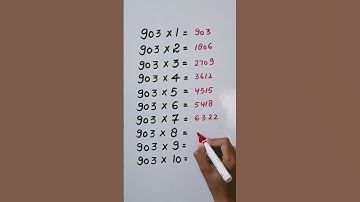 903 x 1 = 903
903 x 2 = 1806
903 x 3 = 2709
903 x 4 = 3612
903 x 5 = 4515
903 x 6 = 5418
903 x 7 = 6322
903 x 8 =
903 x 9 =
903 x 10 =